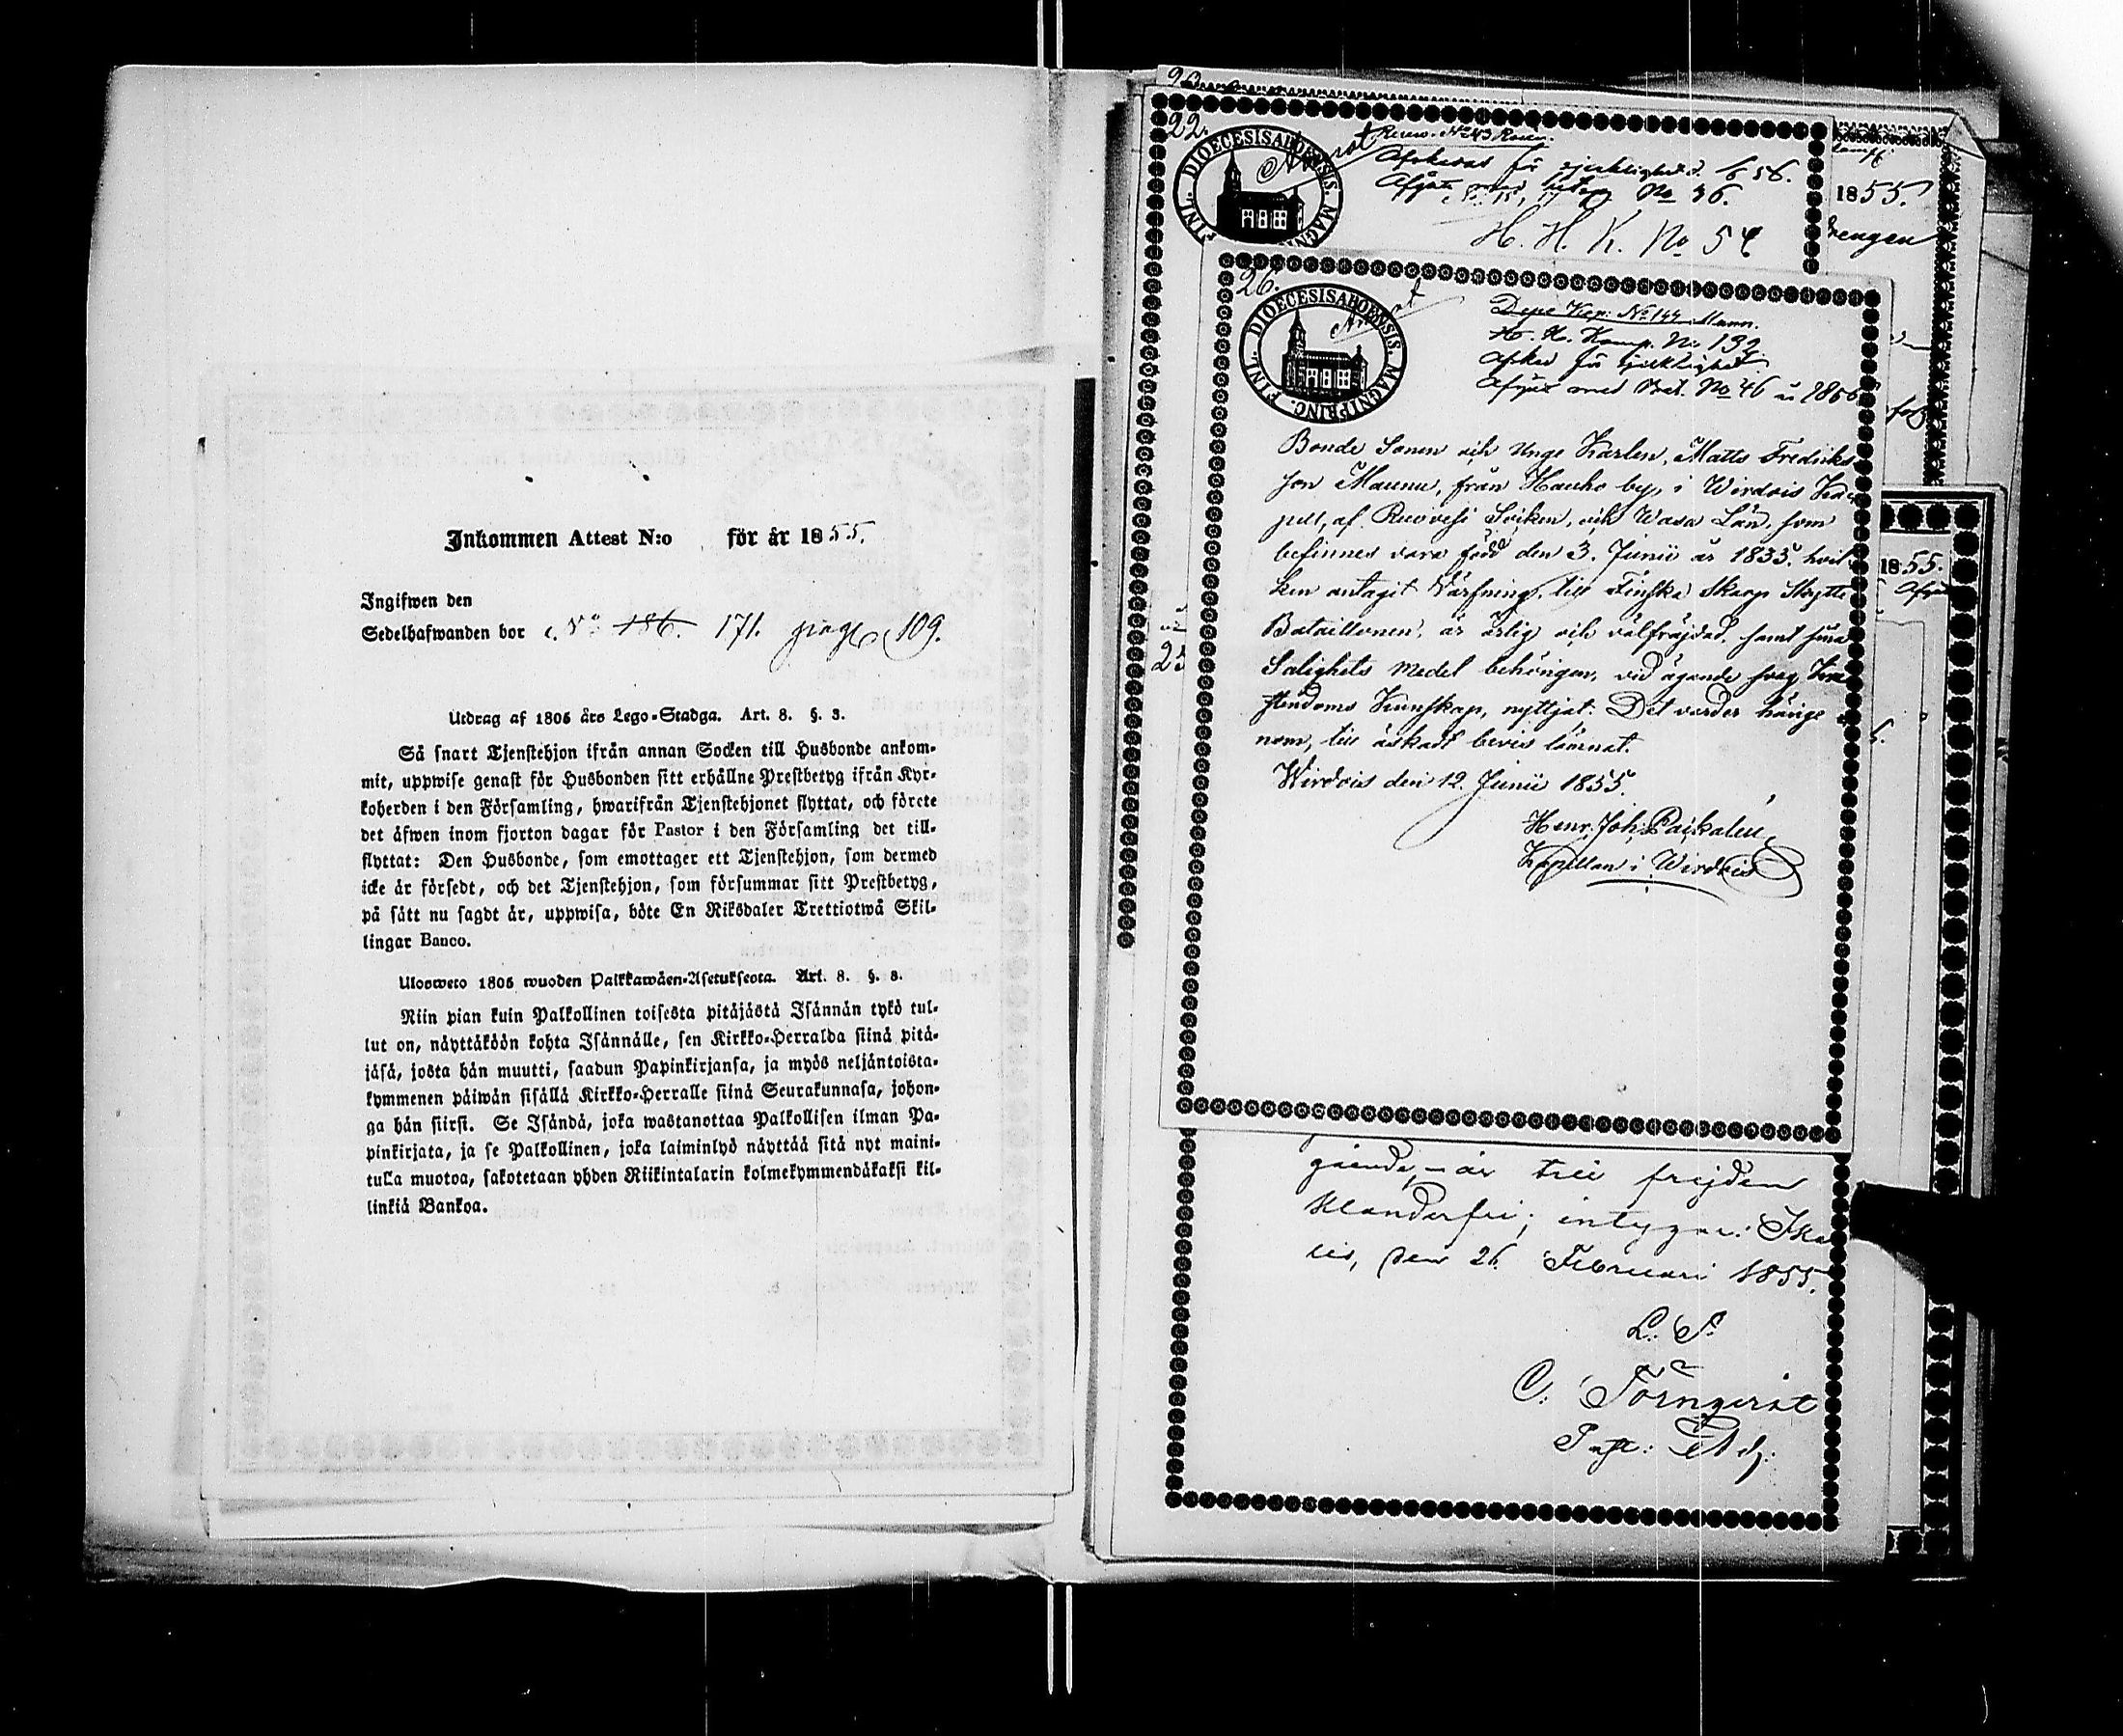 Inkommen Attest N:o för år 1855.
Ingifwen den
Sedelhafwanden bor c. No 186. 171. pag 109.
Utdrag af 1805 års Lego-Stadga. Art. 8. §. 3.
Så snart Tjenstehjon ifrån annan Socken till Husbonde ankom-
mit, uppwise genast för Husbonden sitt erhållne Prestbetyg ifrån Kyr-
koherden i den Församling, hwarifrån Tjenstehjonet flyttat, och förete
det äfwen inom fjorton dagar för Pastor i den Församling det till-
flyttat: Den Husbonde, som emottager ett Tjenstehjon, som dermed
icke är försedt, och det Tjenstehjon, som försummar sitt Prestbetyg,
på sätt nu sagdt är, uppwisa, böte En Riksdaler Trettiotwå Skil-
lingar Banco.
Ulosweto 1805 wuoden Palkkawäen-Asetuksesta. Art. 8. §. 3.
Niin pian kuin Palkollinen toisesta pitäjästä Isännän tykö tul-
lut on, näyttäköön kohta Isännälle, sen Kirkko-Herralda siinä pitä-
jäsä, josta hän muutti, saadun Papinkirjansa, ja myös neljäntoista-
kymmenen päiwän sisällä Kirkko-Herralle siinä Seurakunnasa, johon-
ga hän siirsi. Se Isändä, joka wastanottaa Palkollisen ilman Pa-
pinkirjata, ja se Palkollinen, joka laiminlyö näyttää sitä nyt maini-
tulla muotoa, sakotetaan yhden Riikintalarin kolmekymmendäkaksi kil-
linkiä Bankoa.
22.
DIOECESIS ABOENSIS. MAGNI FINL.
för sjuklighet d. 6 56.
No 36.
H. H. K. No 54
1855.
Drengen
26.
DIOECESIS ABOENSIS. MAGNI PRINC. FINL.
Depe Kop: No 144 Maun.
H. H. Komp. No 139
Afsked för sjuklighet.
Afgått med Bet. No 46 1856
Bonde Sonen och Unge Karlen, Matts Fredriks
son Maunu, från Hauho by, i Wirdois Ka
pell, af Ruovesi Socken, och Wasa Län, som
befinnes vara född den 3. Junii år 1835. hvil
ken antagit Värfning till Finska Skarp Skytte
Bataillonen, är ärlig och välfräjdad, samt sina
Salighets medel behörigen, vid ägande svag Kri
stendoms Kunskap, nyttjat: Det varder härige
nom, till äskadt bevis lämnat.
Wirdois den 12. Junii 1855.
Henr. Joh. Paikalen
Kapellan i Wirdois
1855.
25
gående, är till frejden
klanderfri; intygar: Ika
lis, den 26. Februari 1855.
L. S.
C: Törnqvist
Past: Adj.